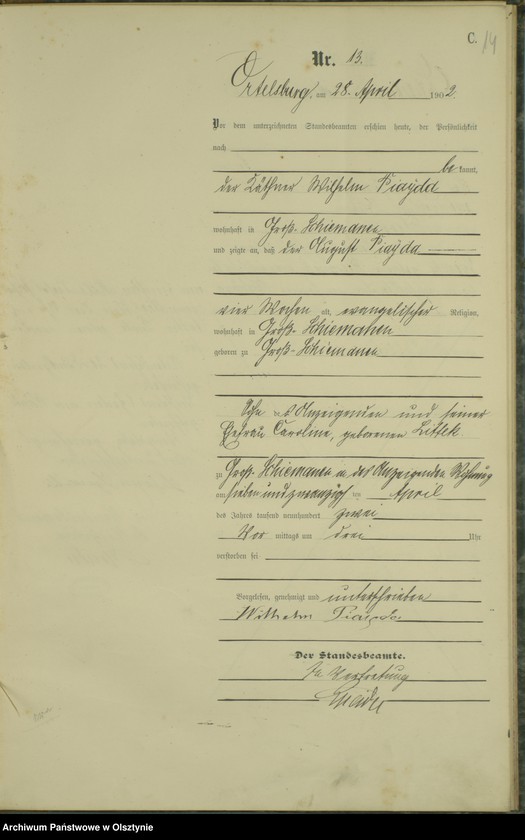 C. 14
Nr. 13.
Ortelsburg, am 28. April 1902.
Vor dem unterzeichneten Standesbeamten erschien heute, der Persönlichkeit
nach
be kannt,
der Käthner Wilhelm Piayda
wohnhaft in Groß-Schiemanen
und zeigte an, daß der August Piayda
vier Wochen alt, evangelischer Religion,
wohnhaft in Groß-Schiemanen
geboren zu Groß-Schiemanen
Sohn des Anzeigenden und seiner
Ehefrau Caroline, geborenen Littek
zu Groß-Schiemanen in des Anzeigenden Wohnung
am sieben und zwanzigsten April
des Jahres tausend neunhundert zwei
Vor mittags um drei Uhr
verstorben sei
Vorgelesen, genehmigt und unterschrieben
Wilhelm Piayda
Der Standesbeamte.
In Vertretung
Archiwum Państwowe w Olsztynie